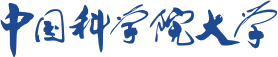 中国科学院大学